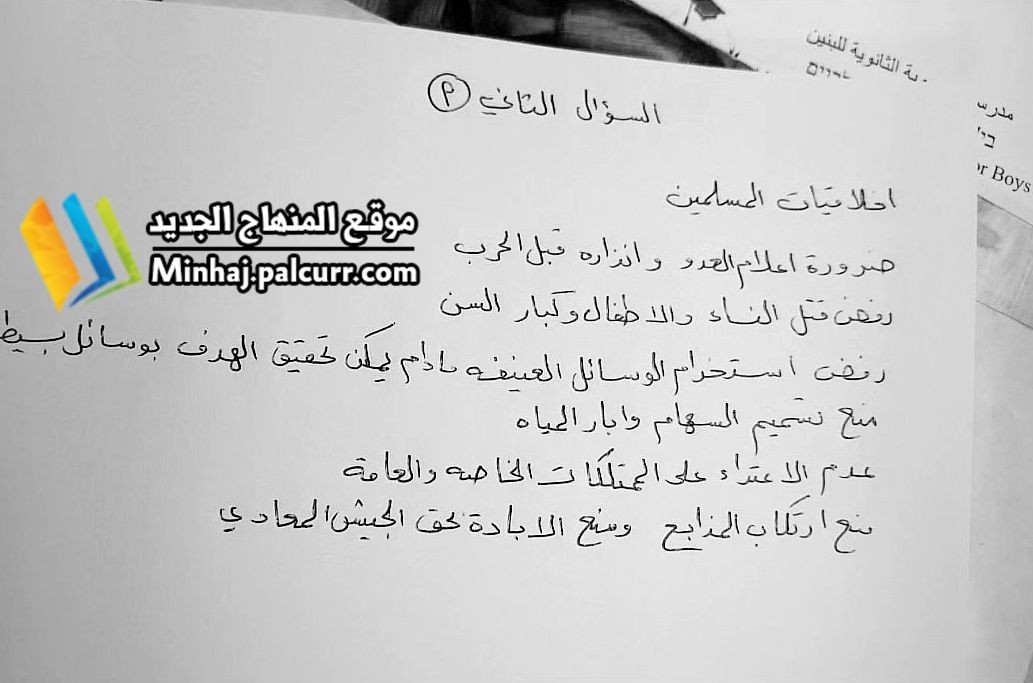 ية الثانوية للبنين
مدرس
r Boys
السؤال الثاني (م)
اخلاقيات المسلمين
ضرورة اعلام العدو وانذاره قبل الحرب
رفض قتل النساء والاطفال وكبار السن
رفض استخدام الوسائل العنيفه مادام يمكن تحقيق الهدف بوسائل بسيط
منع تسميم السهام وابار المياه
عدم الاعتداء على الممتلكات الخاصه والعامة
منع ارتكاب المذابح ومنع الابادة بحق الجيش المعادي
موقع المنهاج الجديد
Minhaj.palcurr.com